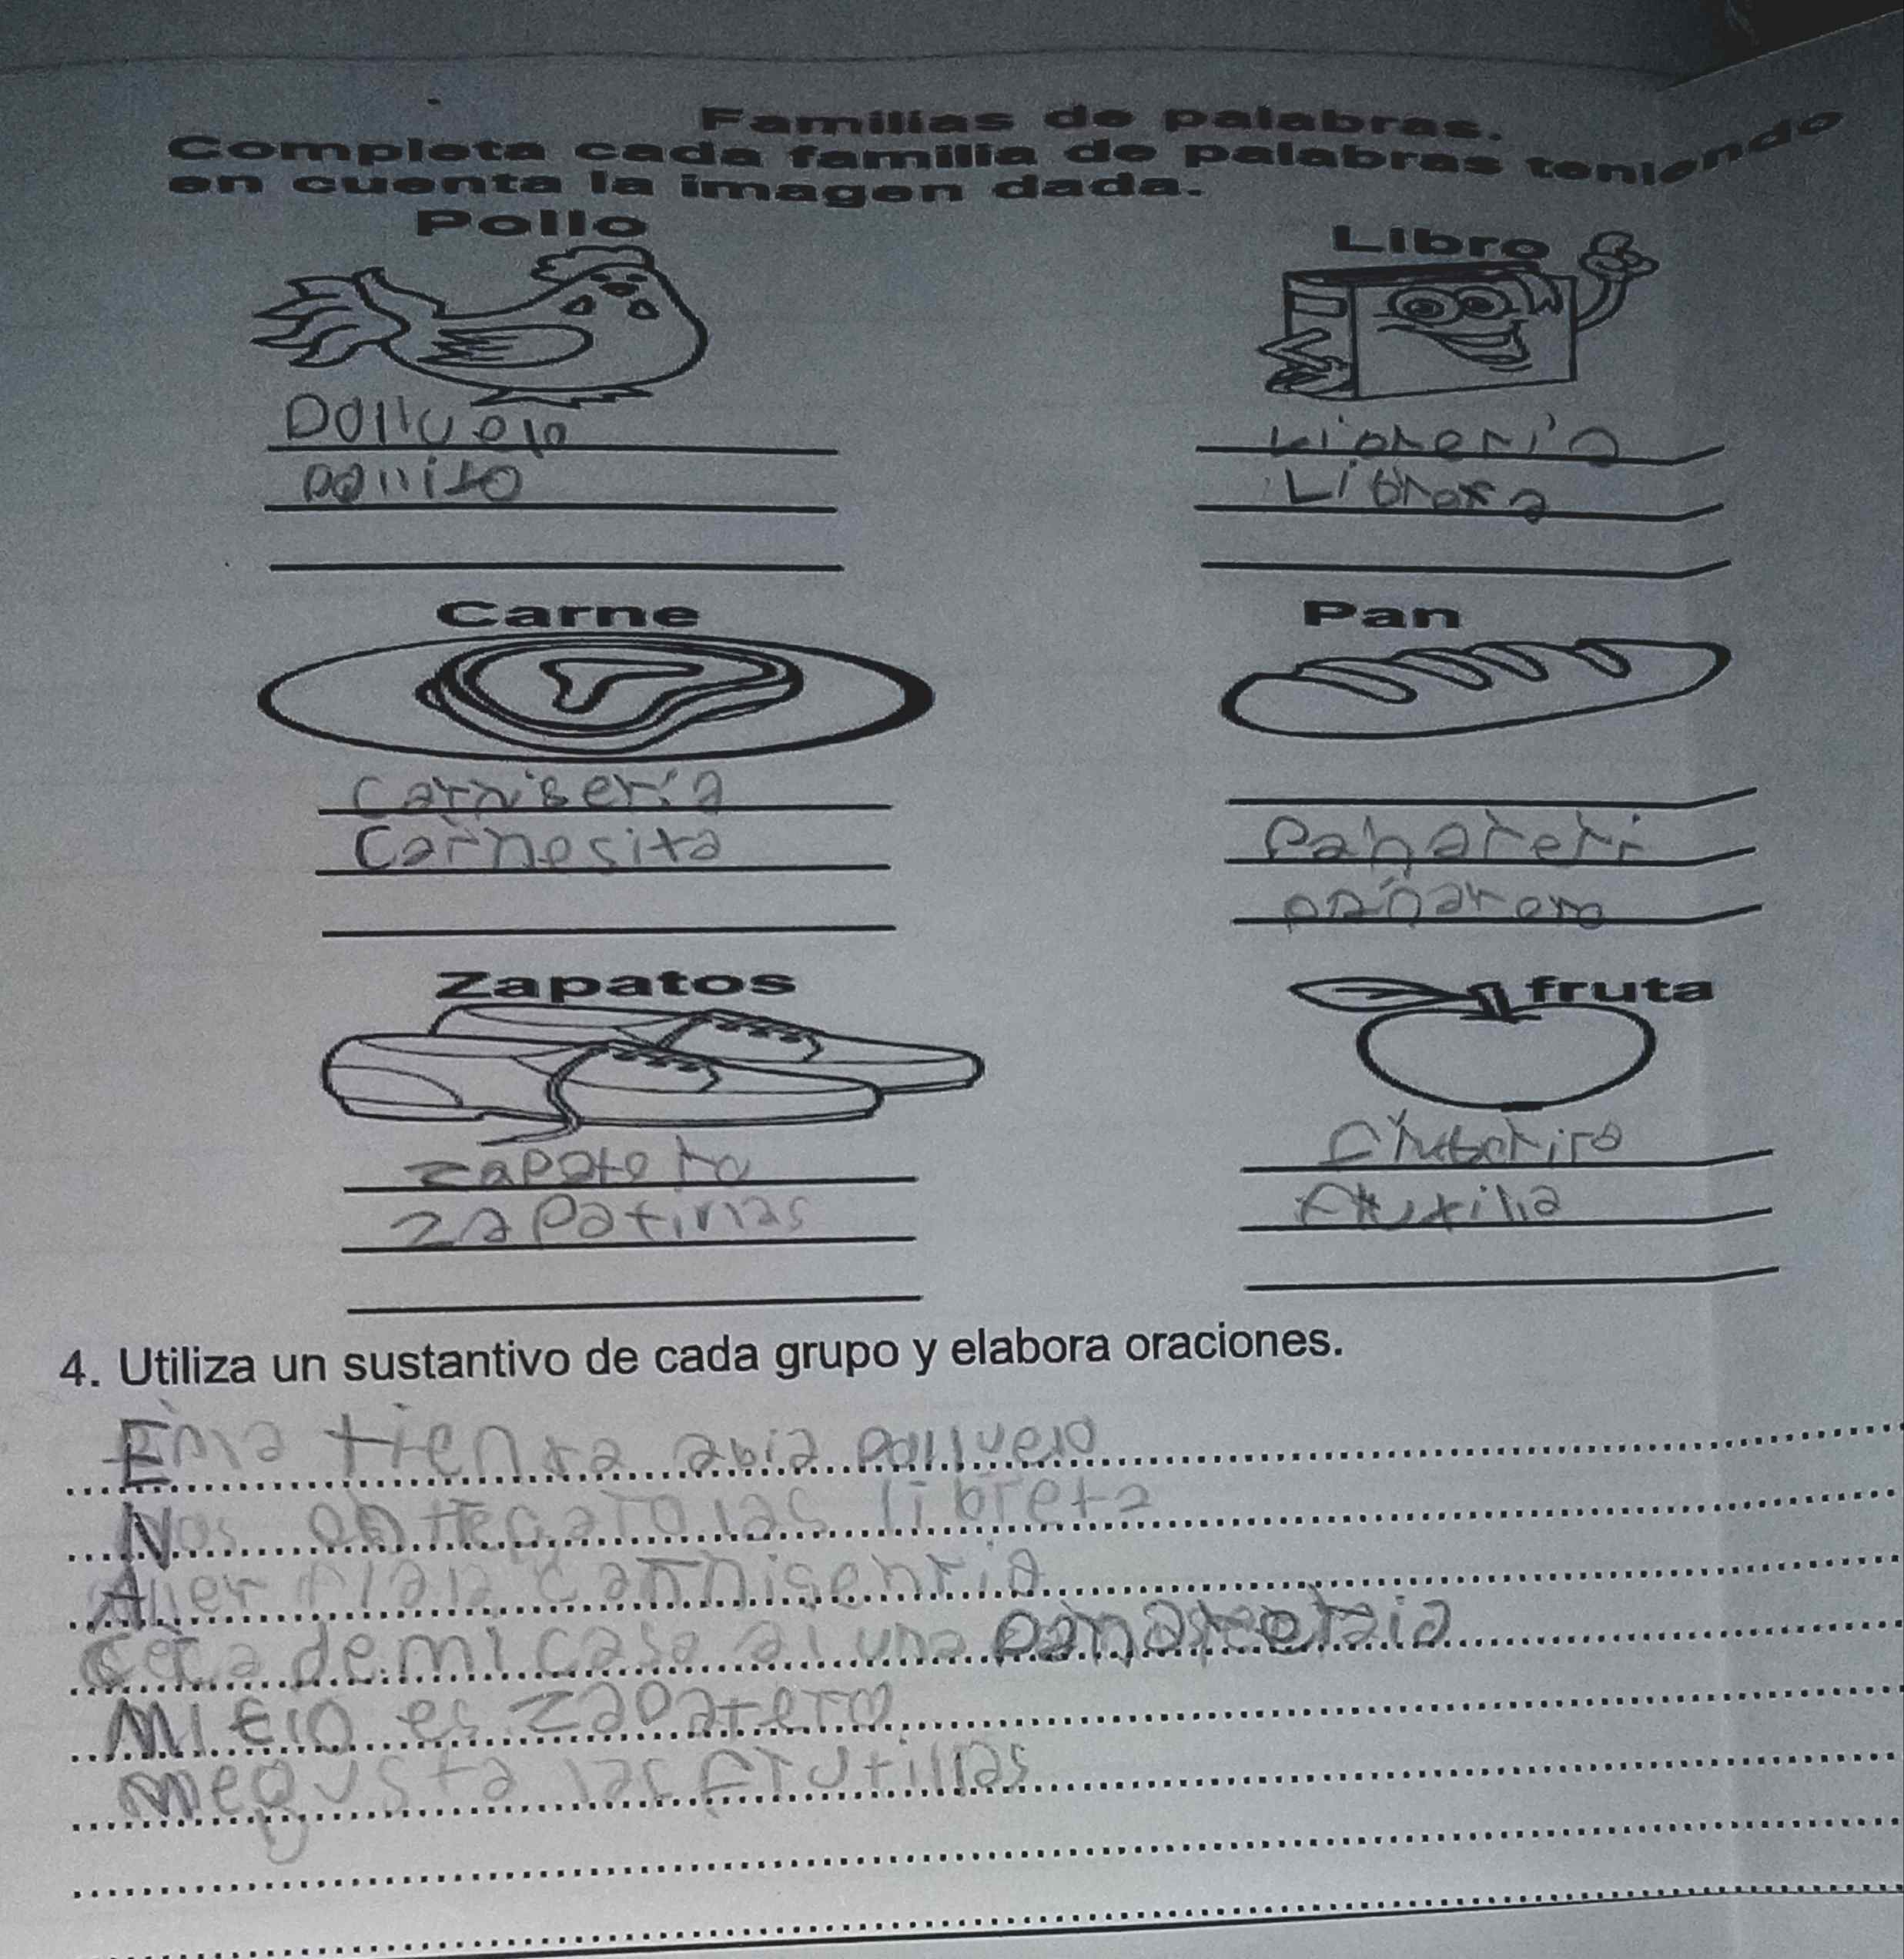 Familias de palabras.
Completa cada familia de palabras teniendo
en cuenta la imagen dada.
Pollo
Libro
Polluelo
pollito
Libreria
Libreta
Carne
Pan
Carnisería
Carnesita
Panareri
panarero
Zapatos
fruta
zapatero
zapatinas
frutilla
4. Utiliza un sustantivo de cada grupo y elabora oraciones.
Ema tienra abia polluelo
Nos entregaro las libreta
la carnisehria
cerca de mi casa ai una
Mi tio es zapatero
me gusta las frutillas